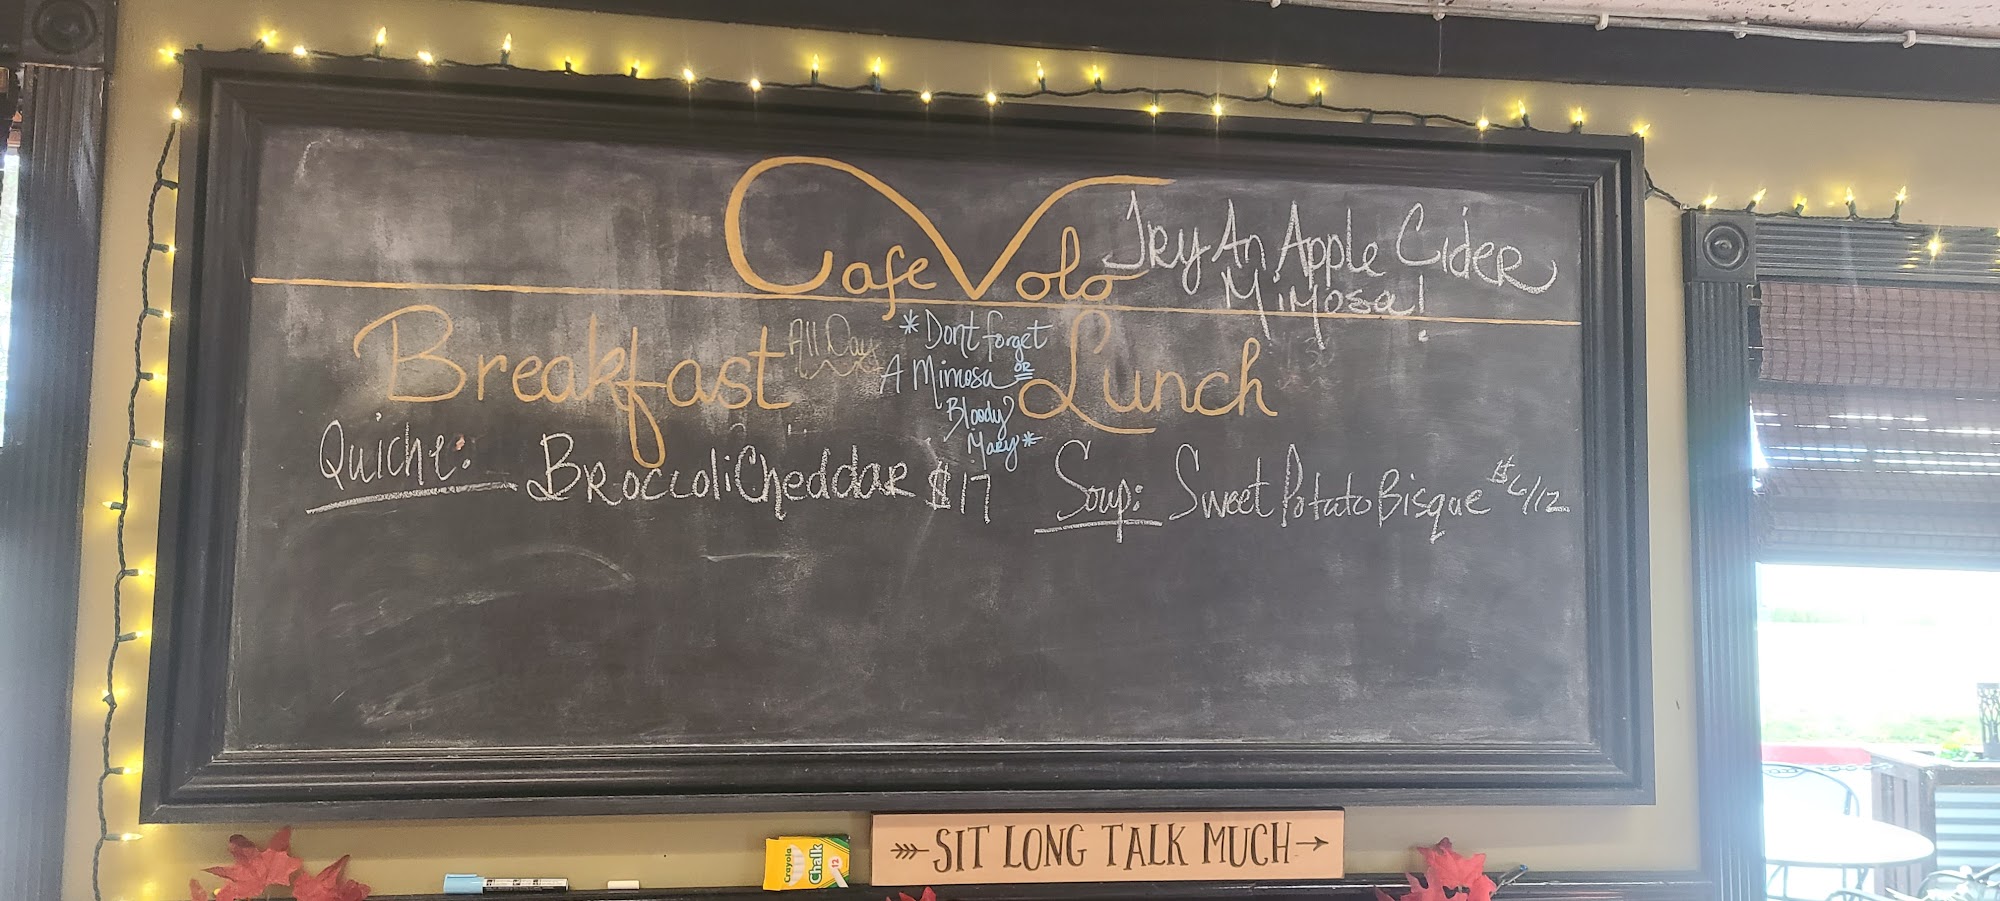 Cafe Volo
Try An Apple Cider
Mimosa!
Breakfast
All Day
*Dont forget
A Mimosa OR
Bloody
Mary*
Lunch
Quiche: Broccoli Cheddar $17
Soup: Sweet Potato Bisque $6/12
SIT LONG TALK MUCH
Crayola
Chalk
12